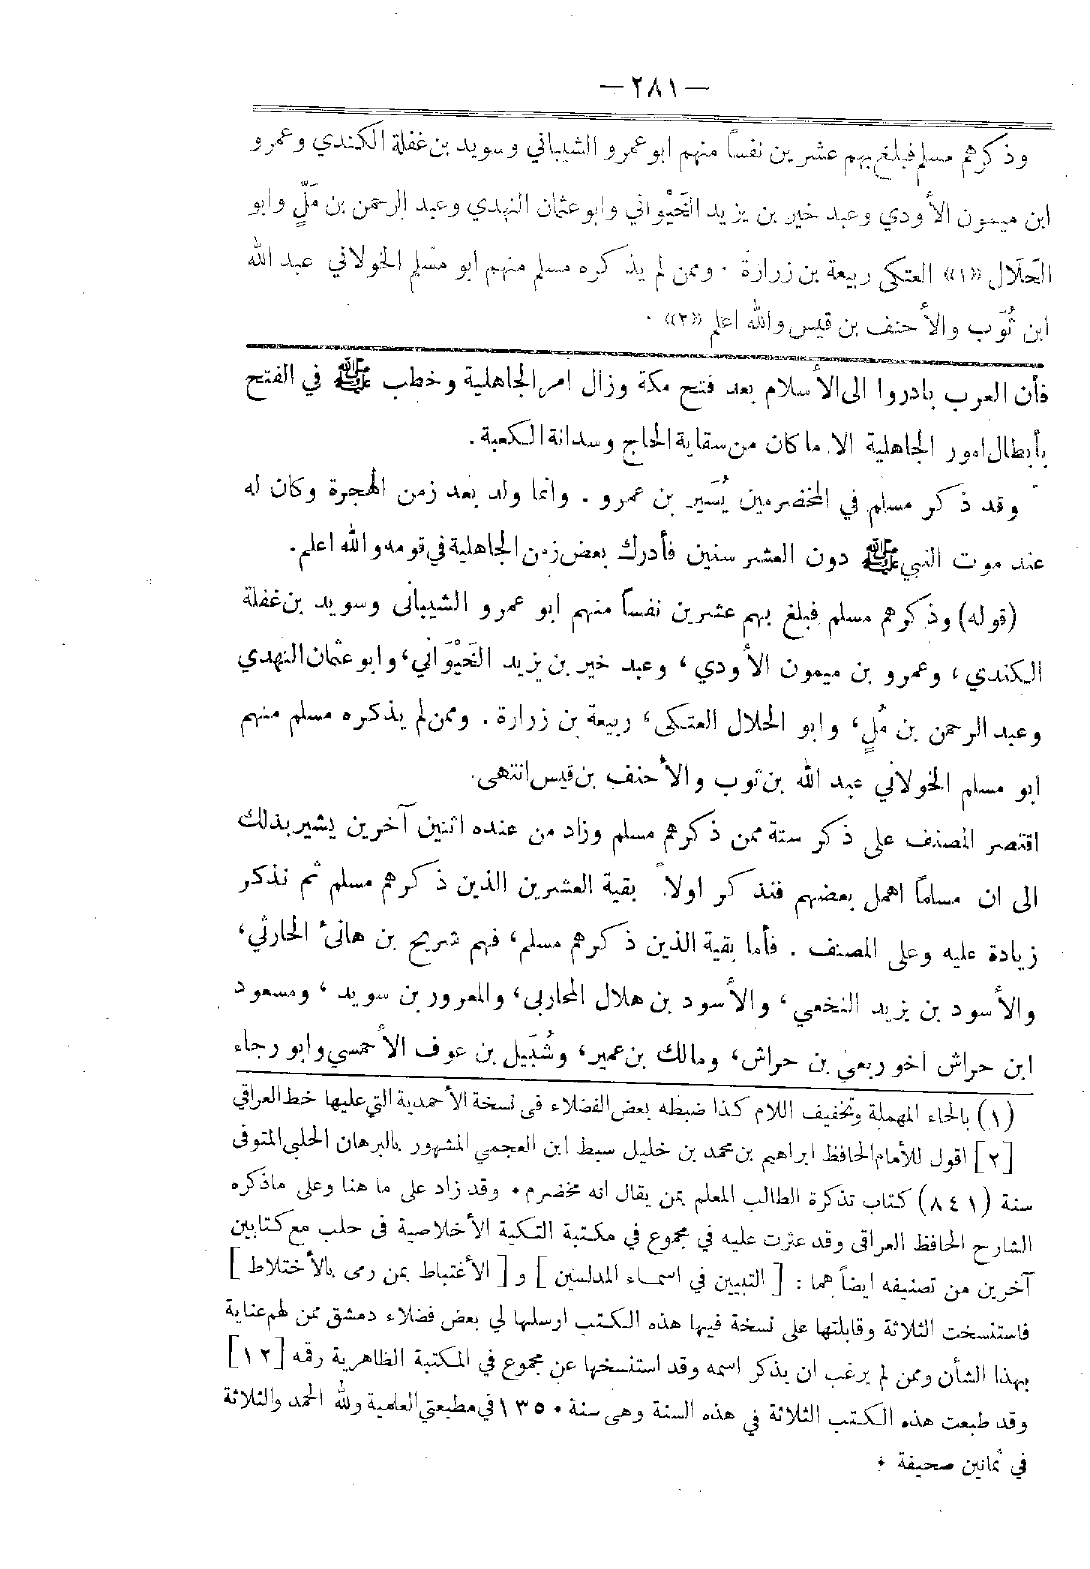 — ٢٨١ —
وذكرهم مسلم فبلغ بهم عشرين نفساً منهم ابو عمرو الشيباني وسويد بن غفلة الكندي وعمرو
ابن ميمون الأودي وعبد خير بن يزيد الخَيْواني وابو عثمان النهدي وعبد الرحمن بن مَلٍّ وابو
الحَلَال «١» العتكي ربيعة بن زرارة . وممن لم يذكره مسلم منهم ابو مسْلم الخولاني عبد الله
ابن ثُوَب والأحنف بن قيس والله اعلم «٢» .
فأن العرب بادروا الى الأسلام بعد فتح مكة وزال امر الجاهلية وخطب ﷺ في الفتح
بأبطال امور الجاهلية الا ما كان من سقاية الحاج وسدانة الكعبة .
وقد ذكر مسلم في المخضرمين يُسَير بن عمرو . وانما ولد بعد زمن الهجرة وكان له
عند موت النبي ﷺ دون العشر سنين فأدرك بعض زمن الجاهلية في قومه والله اعلم .
(قوله) وذكرهم مسلم فبلغ بهم عشرين نفساً منهم ابو عمرو الشيباني وسويد بن غفلة
الكندي ، وعمرو بن ميمون الأودي ، وعبد خير بن يزيد الخَيْوَاني ، وابو عثمان النهدي
وعبد الرحمن بن مُلٍ ، وابو الحلال العتكي ، ربيعة بن زرارة . وممن لم يذكره مسلم منهم
ابو مسلم الخولاني عبد الله بن ثوب والأحنف بن قيس انتهى .
اقتصر المصنف على ذكر ستة ممن ذكرهم مسلم وزاد من عنده اثنين آخرين يشير بذلك
الى ان مسلماً اهمل بعضهم فنذكر اولاً بقية العشرين الذين ذكرهم مسلم ثم نذكر
زيادة عليه وعلى المصنف . فأما بقية الذين ذكرهم مسلم ، فهم شريح بن هانئ الحارثي ،
والأسود بن يزيد النخعي ، والأسود بن هلال المحاربي ، والمعرور بن سويد ، ومسعود
ابن حراش اخو ربعي بن حراش ، ومالك بن عمير ، وشُبَيل بن عوف الأحمسي وابو رجاء
(١) بالحاء المهملة وتخفيف اللام كذا ضبطه بعض الفضلاء في نسخة الأحمدية التي عليها خط العراقي
[٢] اقول للأمام الحافظ ابراهيم بن محمد بن خليل سبط ابن العجمي المشهور بالبرهان الحلبي المتوفى
سنة (٨٤١) كتاب تذكرة الطالب المعلم بمن يقال انه مخضرم . وقد زاد على ما هنا وعلى ما ذكره
الشارح الحافظ العراقي وقد عثرت عليه في مجموع في مكتبة التكية الأخلاصية في حلب مع كتابين
آخرين من تصنيفه ايضاً هما : [ التبيين في اسماء المدلسين ] و [ الأغتباط بمن رمى بالأختلاط ]
فاستنسخت الثلاثة وقابلتها على نسخة فيها هذه الكتب ارسلها لي بعض فضلاء دمشق ممن لهم عناية
بهذا الشأن وممن لم يرغب ان يذكر اسمه وقد استنسخها عن مجموع في المكتبة الظاهرية رقمه [١٢]
وقد طبعت هذه الكتب الثلاثة في هذه السنة وهي سنة ١٣٥٠ في مطبعتي العلمية ولله الحمد والثلاثة
في ثمانين صحيفة .